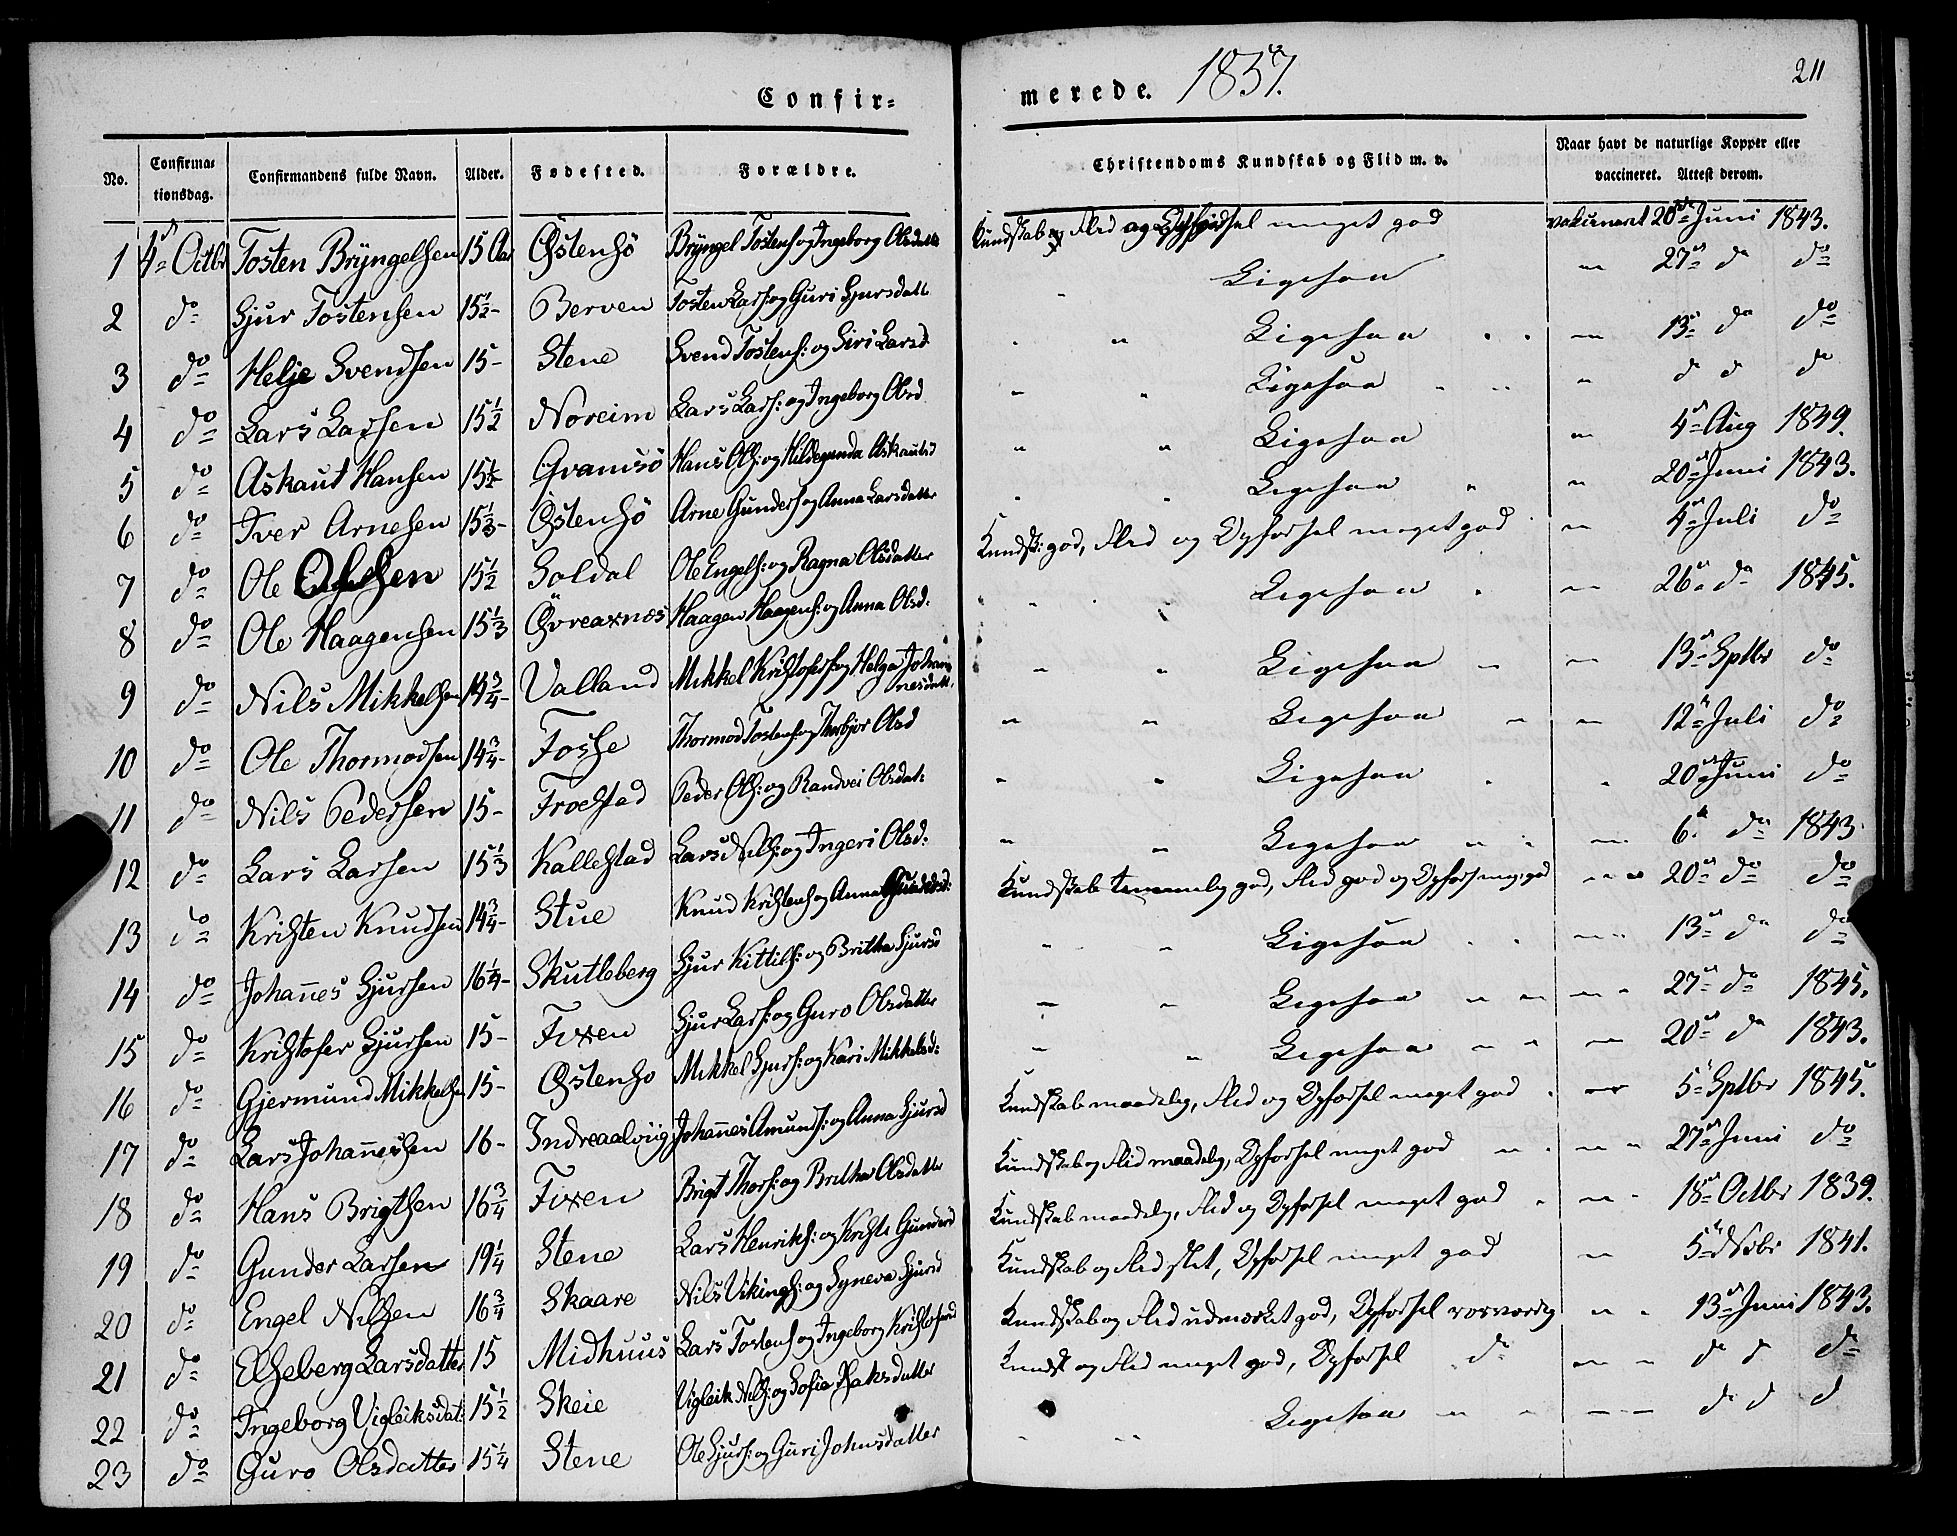 Confir= merede. 1857. 211
No. Confirma- tionsdag. Confirmandens fulde Navn. Alder. Fødested. Forældre. Christendoms Kundskab og Flid m. v. Naar havt de naturlige Kopper eller vaccineret. Attest derom.
1 4de Octbr Tosten Bryngelsen 15 Aar Østensø Bryngel Tostens: og Ingeborg Olsdatte Kundskab og Flid og Opførsel meget god vakcineret 20de Juni 1843.
2 do Sjur Tostensen 15½- Berven Tosten Lars: og Guri Sjursdatt Ligesaa " 27de do do
3 do Helje Svendsen 15- Stene Svend Tostens: og Siri Larsd " Ligesaa " 13de do do
4 do Lars Larsen 15½ Noreim Lars Lars: og Ingeborg Olsd " " Ligesaa " do do do
5 do Askaut Hansen 15½ Qvamsø Hans Ols: og Hildegunda Askautsd " " Ligesaa " 4de Aug 1849.
6 do Iver Arnesen 15⅓- Østensø Arne Gunders: og Anna Larsdatter Ligesaa " " 20de Juni 1843.
7 do Ole Olsen 15½ Soldal Ole Engels: og Ragna Olsdatter Kundsk: god, Flid og Opførsel meget god " 4de Juli do
8 do Ole Haagensen 15⅓ Øvreaxnes Haagen Haagens: og Anna Olsd: Ligesaa " 26de do 1845.
9 do Nils Mikkelsen 14¾- Valland Mikkel Kristofers: og Helga Johan- nesdatt. " " Ligesaa " " 13de Sptbr do
10 do Ole Thormodsen 14¾- Fosse Thormod Tostens: og Thorbjør Olsd " " Ligesaa " " 12te Juli do
11 do Nils Pedersen 15- Froestad Peder Ols: og Randvei Olsdat: " " Ligesaa 20de Juni do
12 do Lars Larsen 15⅓ Kallestad Lars Nils: og Ingeri Olsd: " " Ligesaa " " 6te do 1843
13 do Kristen Knudsen 14¾- Stue Knud Kristens: og Anna Gundersd: Kundskab temmelig god, Flid god og Opførs meg: god " 20de do do
14 do Johannes Sjursen 16¼- Skutleberg Sjur Kittils: og Britha Sjursd Ligesaa " 13de do do
15 do Kristofer Sjursen 15- Fixen Sjur Lars: og Guro Olsdatter " " Ligesaa " " " 27de do 1845.
16 do Gjermund Mikkelsen 15- Østensø Mikkel Sjurs: og Kari Mikkelsd: " " Ligesaa " " " 20de do 1843.
17 do Lars Johannessen 16- Indreaalviig Johannes Amunds: og Anna Sjursd Kundskab maadelig, Flid og Opførsel meget god " 5te Sptbr 1845.
18 do Hans Brigtsen 16¾ Fixen Brigt Thors: og Britha Olsdatter Kundskab og Flid maadelig, Opførsel meget god " " 27de Juni do
19 do Gunder Larsen 19¼ Stene Lars Henriks: og Kristi Gundersd Kundskab maadelig, Flid og Opførsel meget god " " 18de Octbr 1839.
20 do Engel Nilsen 16¾ Skaare Nils Vikings: og Syneva Sjursd Kundskab og Flid slet, Opførsel meget god " 5te Novbr 1841.
21 do Elseberg Larsdatter 15 Midhuus Lars Tostens: og Ingeborg Kristofersd Kundskab og Flid udmærket god, Opførsel rosværdig " " 13de Juni 1843.
22 do Ingeborg Vigleiksdat: 15½ Skeie Vigleik Nils: og Sofia Isaksdatter Kundsk og Flid meget god, Opførsel do " " do do do
23 do Guro Olsdatter 15¼ Stene Ole Sjurs: og Guri Johnsdatter Ligesaa " " do do do